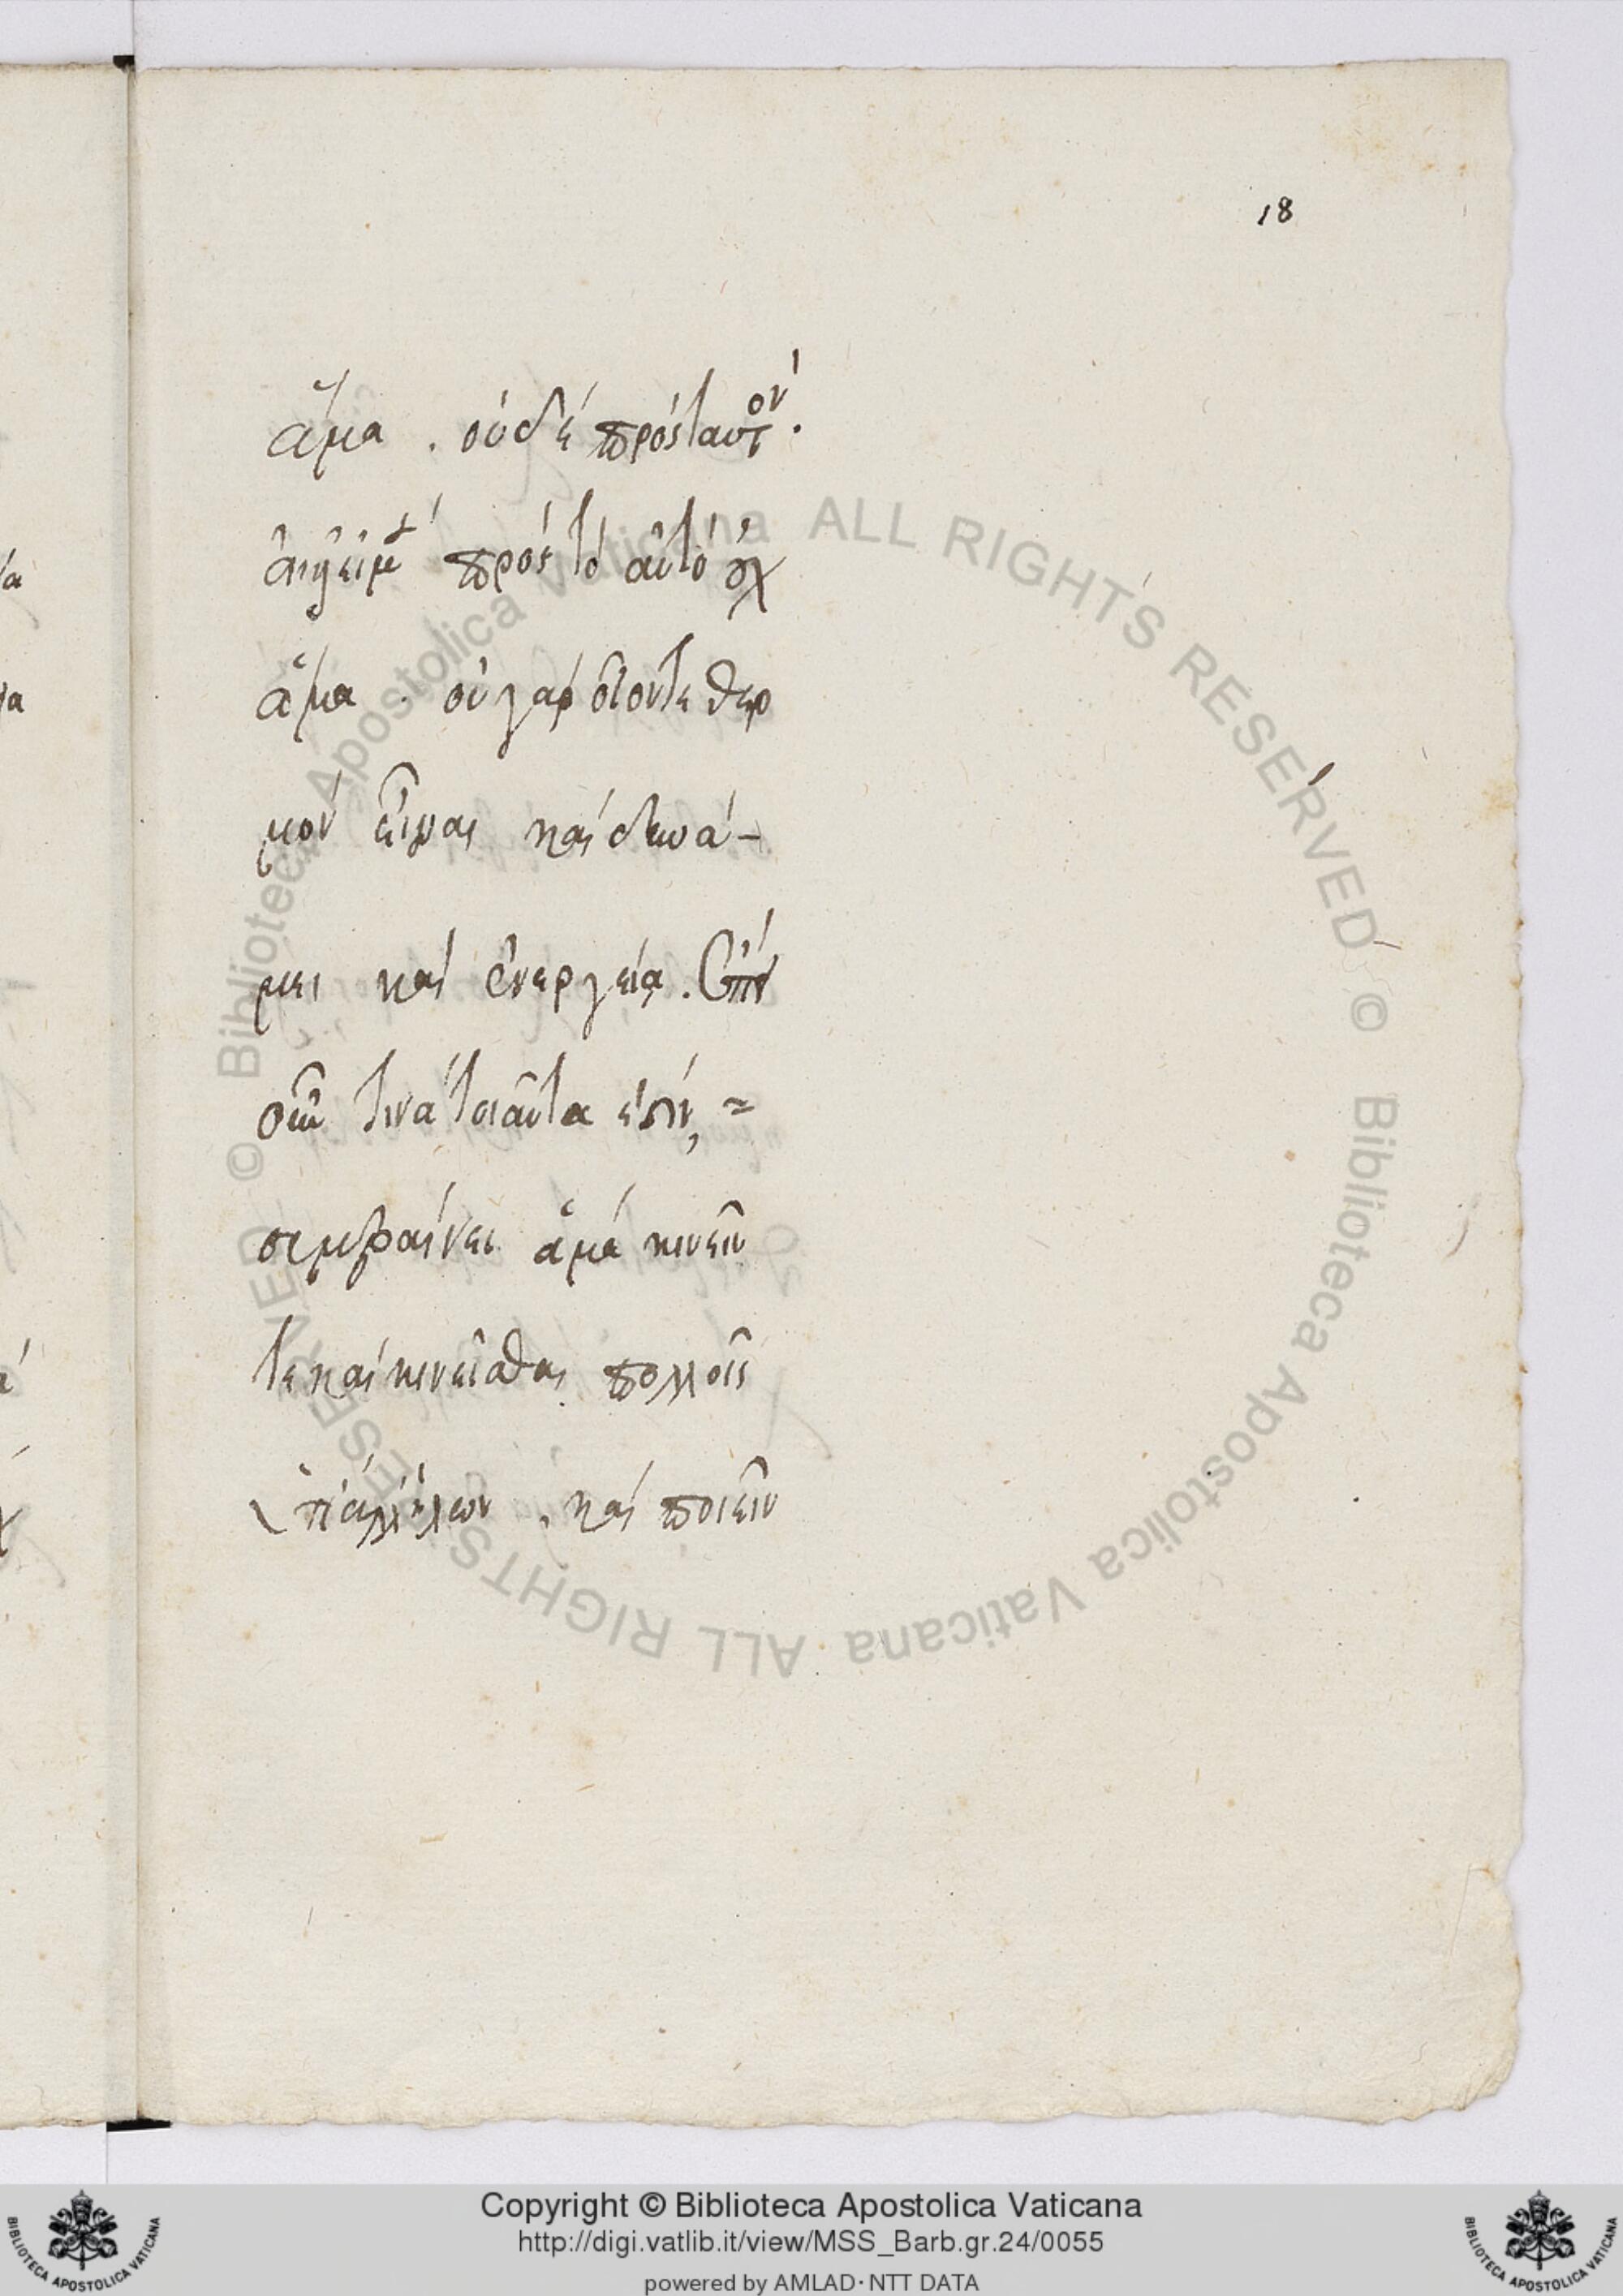 18
ἅμα . οὐδὲ πρὸς ταυτὸν .
πρὸς τὸ αὐτὸ οὐχ
ἅμα . οὐ γὰρ οἷόντε θερ
μὸν εἶναι καὶ δυνά-
μει καὶ ἐνεργείᾳ . ἐπεὶ
οὖν τινὰ τοιαῦτα ἐστὶν,
συμβαίνει ἅμα κινεῖν
τε καὶ κινεῖσθαι πολλοῖς
ὑπ' ἀλλήλων . καὶ ποιεῖν
© Biblioteca Apostolica Vaticana ALL RIGHTS RESERVED © Biblioteca Apostolica Vaticana ALL RIGHTS RESERVED
Copyright © Biblioteca Apostolica Vaticana
http://digi.vatlib.it/view/MSS_Barb.gr.24/0055
powered by AMLAD·NTT DATA
BIBLIOTECA APOSTOLICA VATICANA
BIBLIOTECA APOSTOLICA VATICANA